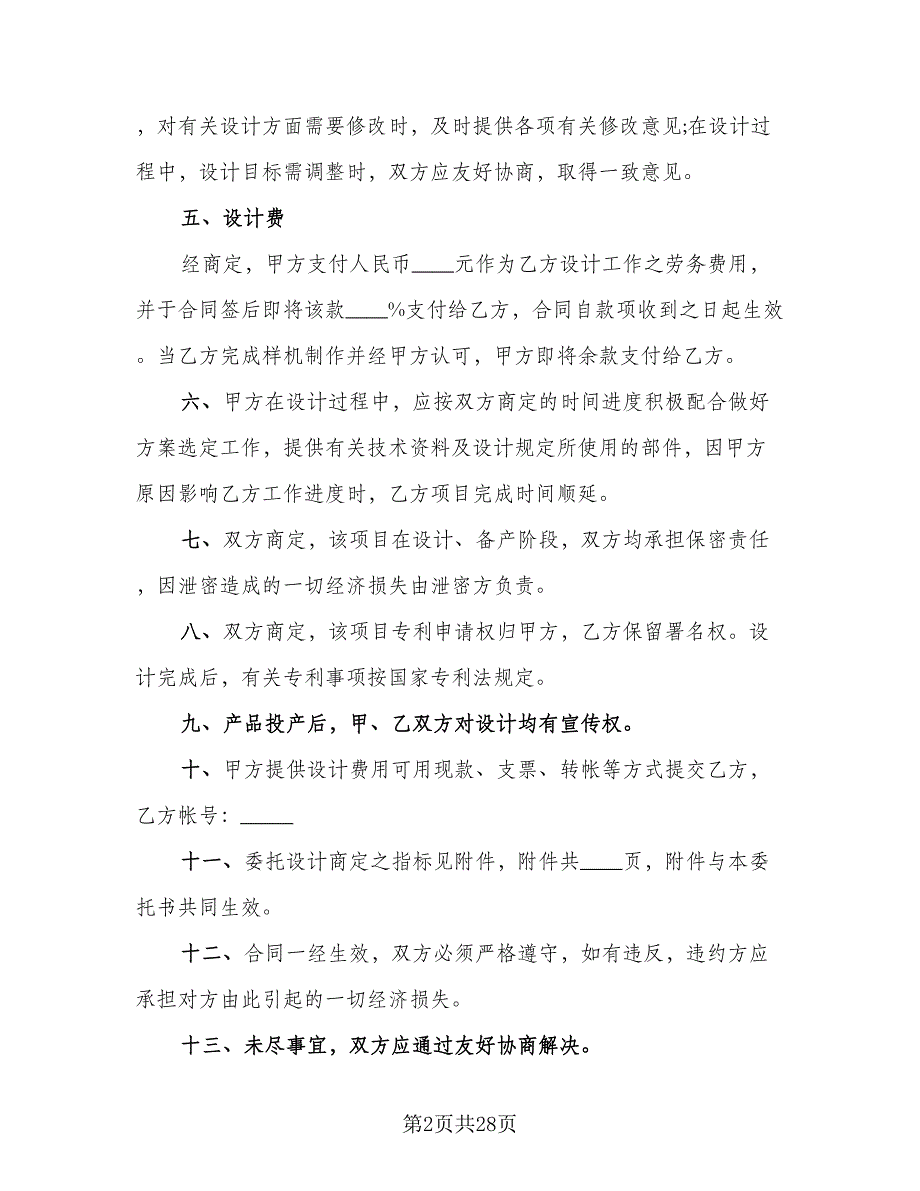 ，对有关设计方面需要修改时，及时提供各项有关修改意见;在设计过
程中，设计目标需调整时，双方应友好协商，取得一致意见。
五、设计费
经商定，甲方支付人民币____元作为乙方设计工作之劳务费用，
并于合同签后即将该款____%支付给乙方，合同自款项收到之日起生效
。当乙方完成样机制作并经甲方认可，甲方即将余款支付给乙方。
六、甲方在设计过程中，应按双方商定的时间进度积极配合做好
方案选定工作，提供有关技术资料及设计规定所使用的部件，因甲方
原因影响乙方工作进度时，乙方项目完成时间顺延。
七、双方商定，该项目在设计、备产阶段，双方均承担保密责任
，因泄密造成的一切经济损失由泄密方负责。
八、双方商定，该项目专利申请权归甲方，乙方保留署名权。设
计完成后，有关专利事项按国家专利法规定。
九、产品投产后，甲、乙双方对设计均有宣传权。
十、甲方提供设计费用可用现款、支票、转帐等方式提交乙方，
乙方帐号：_____
十一、委托设计商定之指标见附件，附件共____页，附件与本委
托书共同生效。
十二、合同一经生效，双方必须严格遵守，如有违反，违约方应
承担对方由此引起的一切经济损失。
十三、未尽事宜，双方应通过友好协商解决。
第2页共28页